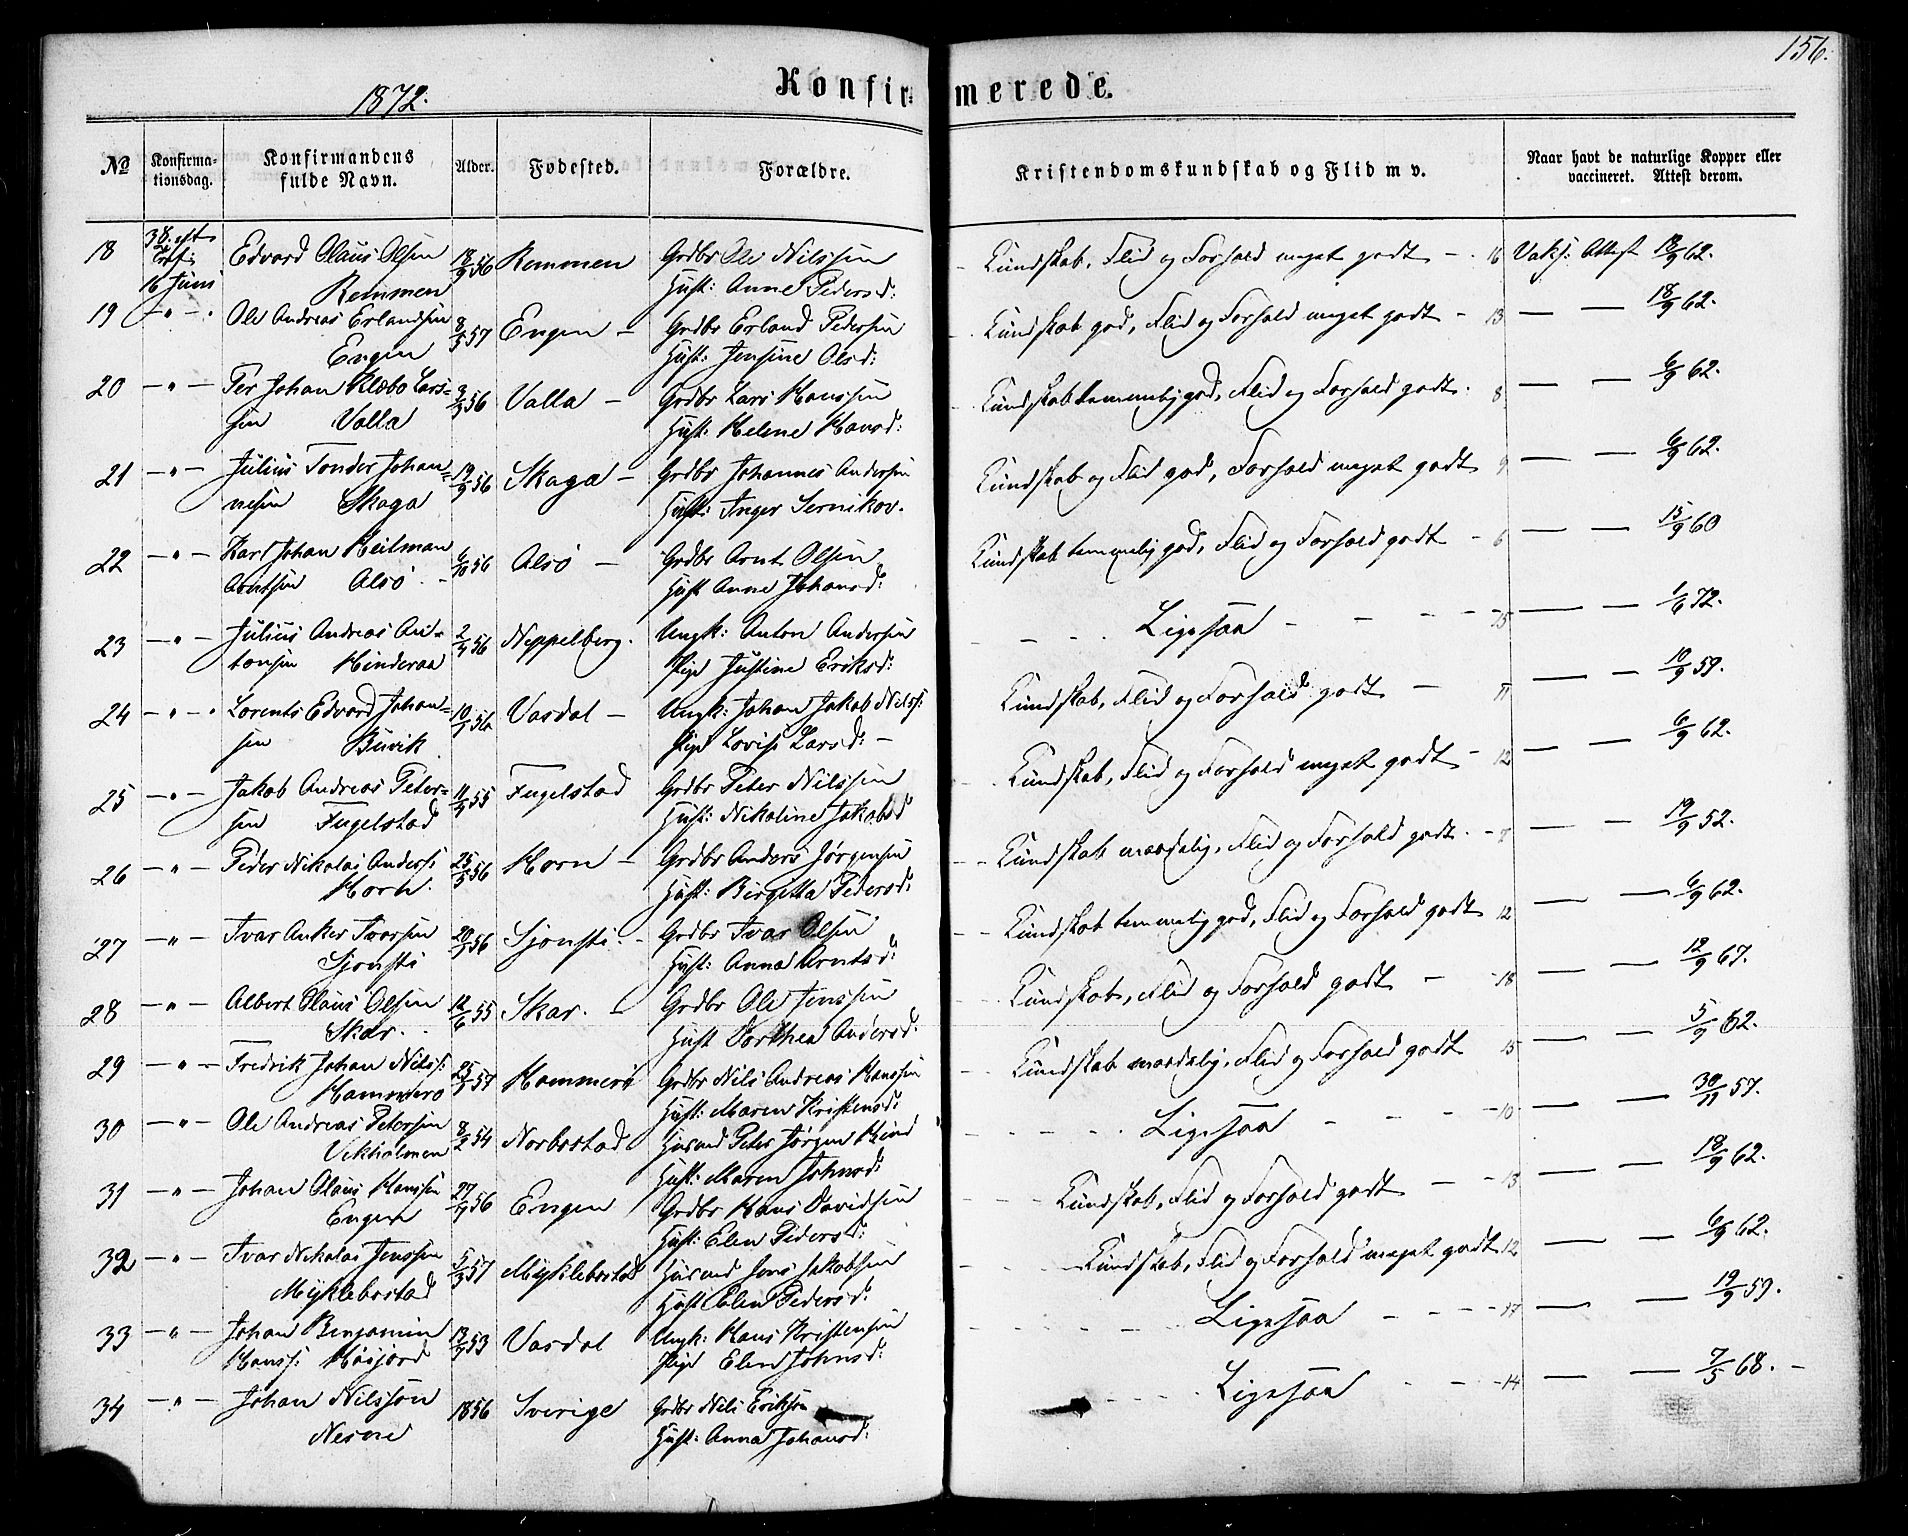 156.
1872.
Konfirmerede.
No
Konfirma-
tionsdag.
Konfirmandens
fulde Navn.
Alder.
Fødested.
Forældre.
Kristendomskundskab og Flid m v.
Naar havt de naturlige Kopper eller
vaccineret. Attest derom.
18 Edvard Olaus Olsen 18/9 56 Remmen Grdbr Ole Nilssen - Kundskab, Flid og Forhold meget godt - 16 Vaks: Attest 18/9 62.
16 Juni Remmen Hust: Anne Pedersd:
19 - " - Ole Andreas Erlandsen 8/5 57 Engen - Grdbr Erland Pedersen - Kundskab god, Flid og Forhold meget godt - 13 — — 18/9 62.
Engen Hust: Jensine Olsd:
20 - " - Per Johan Klæbo Lars- 56 Valla - Grdbr Lars Hanssen Kundskab temmelig god, Flid og Forhold godt. 8 — — 6/9 62.
sen Valla Hust: Helene Hansd:
21 - " - Julius Tonder Johan- 19/9 56 Skaga - Grdbr Johannes Andersen Kundskab og Flid god, Forhold meget godt 9 — — 6/9 62.
nesen Skaga Hust: Inger Sernikov.
22 - " - Karl Johan Heitman 6/10 56 Alsø - Grdbr Arnt Olsen Kundskab temmelig god, Flid og Forhold godt - 6 — — 15/9 60
Arntsen Alsø - Hust Anne Johansd:
23 - " - Julius Andreas An- 56 Neppelberg. Ungk: Anton Andersen Ligesaa - 15 — — 1/6 72.
tonsen Hinderaa Pige Justine Eriksd:
24 - " - Lorents Edvard Johan- 56 Vasdal - Ungk: Johan Jakob Nilss: Kundskab, Flid og Forhold godt - 11 — — 19/9 59.
sen Buvik Pige Lovise Larsd: -
25 - " - Jakob Andreas Peter- 55 Fugelstad Grdbr Peter Nilssen Kundskab, Flid og Forhold meget godt - 12 — — 6/9 62.
sen Fugelstad Hust: Nikoline Jakobsd
26 - " - Peder Nikolai Anders: 25/5 56 Horn - Grdbr Anders Jørgensen Kundskab maadelig, Flid og Forhold godt. - 7 — — 19/9 52.
Horn. Hust: Birgitta Pedersd:
27 - " - Ivar Anker Ivarsen 56 Sjonsti. - Grdbr Ivar Olsen Kundskab temmelig god, Flid og Forhold godt 12 — — 6/9 62.
Sjonsti Hust: Anna Arntsd:
28 - " - Albert Olaus Olsen 12/6 55 Skar. - Grdbr Ole Jenssen Kundskab, Flid og Forhold godt - 18 — — 12/9 67.
Skar. Hust Dorthea Andersd:
29 - " - Fredrik Johan Nilss: 57 Hammerø Grdbr Nils Andreas Hanssen Kundskab maadelig, Flid og Forhold godt 15 — — 5/9 62.
Hammerø Hust: Maren Kristensd:
30 - " - Ole Andreas Petersen 54 Norbostad Husmd Peter Jørgen Hind Ligesaa - 10 — — 30/11 57.
Vikholmen Hust: Maren Johnsd:
31 - " - Johan Olaus Hanssen 56 Engen Grdbr Hans Davidsen Kundskab, Flid og Forhold godt - 13 — — 18/9 62.
Engen Hust: Elen Pedersd:
32 - " - Ivar Nikolai Jenssen 5/3 57 Myklebostad Husmd Jens Jakobsen Kundskab, Flid og Forhold meget godt 12 — — 6/9 62.
Myklebostad Hust Elen Pedersd:
33 - " - Johan Benjamin 53 Vasdal Ungk: Hans Kristensen Ligesaa - 17 — — 19/9 59.
Hanss: Husjord Pige Elen Johnsd:
34 - " - Johan Nilsson 1856 Sverige Grdbr Nils Eriksson Ligesaa - 14 — — 7/5 68. -
Nesne Hust: Anna Johansd: